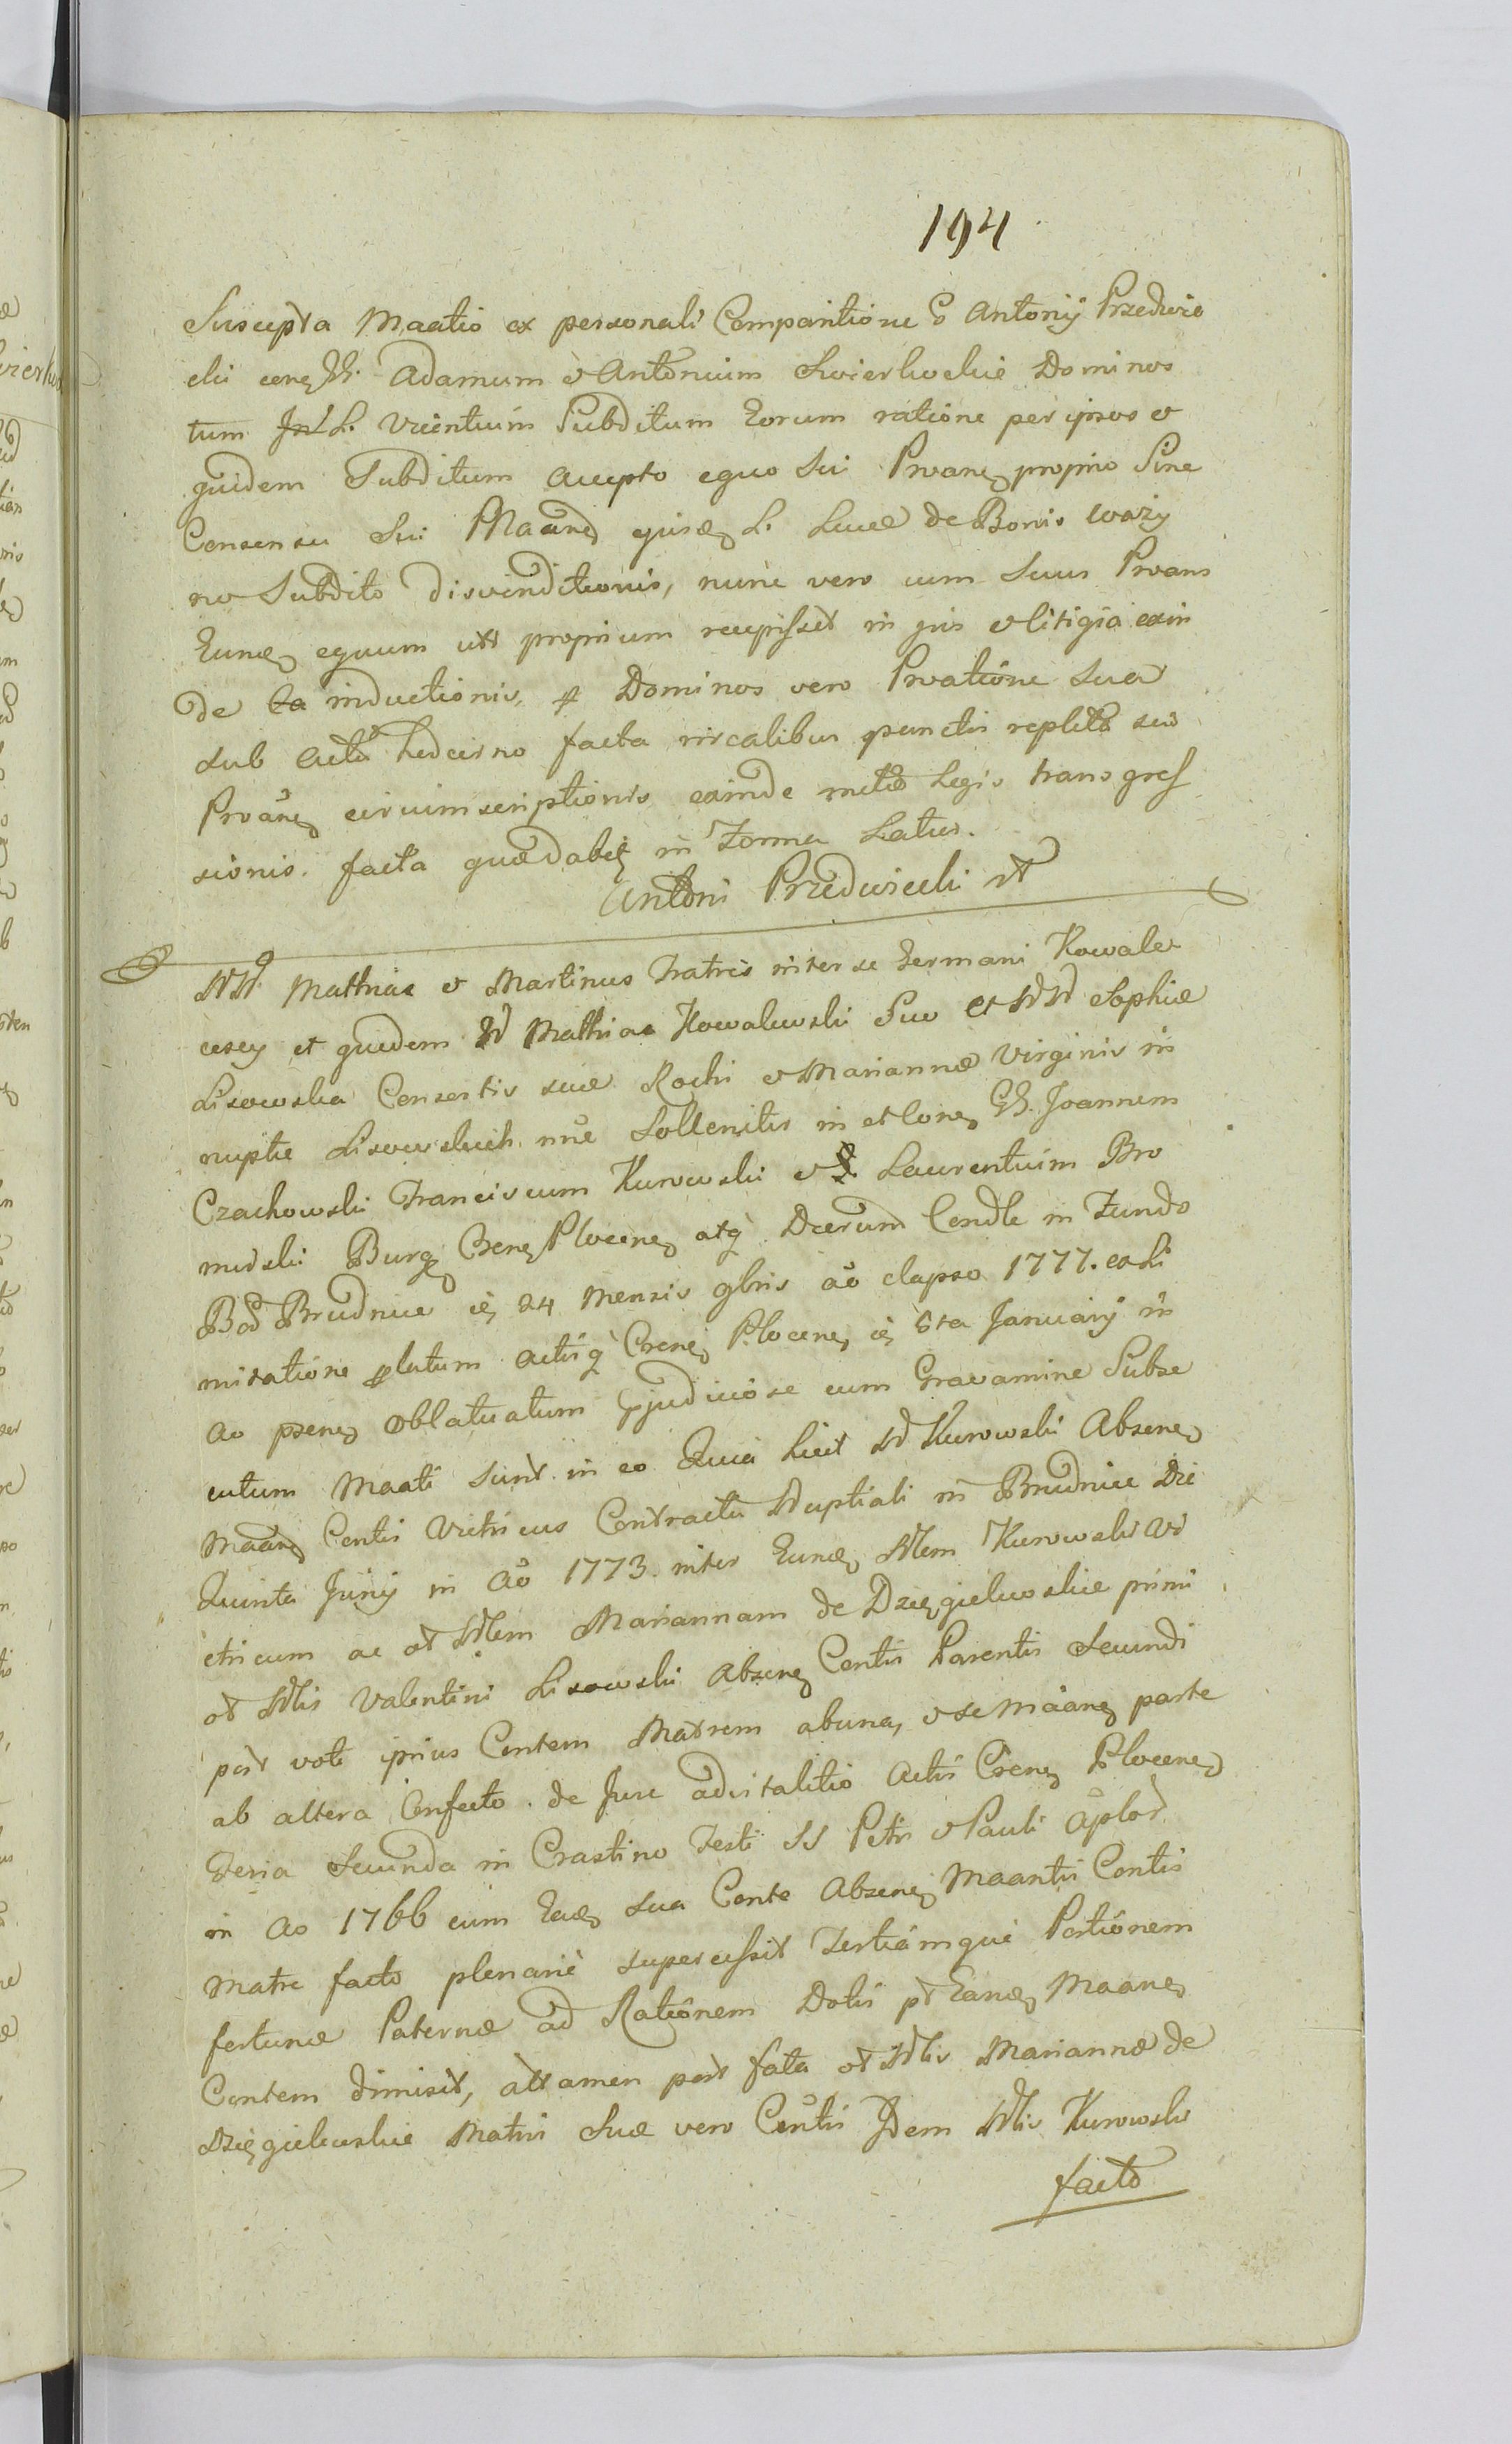 194
Suscepta Maatio ex personali Comparitione G Antonij Przedwie
cki cone GG. Adamum et Antonium Swierkockie Dominos
tum L. Vicentium Subditum Eorum ratione per ipsos et
quidem Subditum accepto equo Sui Proane proprio Sine
Consensu Sui Maand ejusd L. Luce de Bonis Wozy
no Subdito disvenditionis, nunc vero cum Suus Proans
Eund equum uti proprium recepisset in jus et litigia exin
de inductionis, Dominos vero Proatione Sua
sub actu hodierno facta rircalibus punctis repleta seu
Proane circumscriptionis exinde meta Legis transgres
sionis. facta quae dabit in Forma Latius.
Antoni Przedwiecki
NN. Mathias et Martinus Fratres inter se Germani Kowale
wscy et quidem N Mathias Kowalewski Suo et NN Sophiæ
Lisowska Consortis suæ Rochi et Mariannæ Virginis in
nuptæ Lisowskich noe Sollenitus in et cone GG. Joannem
Czachowski Franciscum Kurowski et G. Laurentium Bro
mirski Burg Csen Plocen atq Decretum Condle in Fundo
Bod Brudnice ie 24 Mensis 9bris ao elapso 1777. ex Li
mitatione platum actisq Csen Plocen ie 5ta January in
ao psen Oblatuatum pjudiciose cum Gravamine Subse
cutum Maati sunt in eo Quia licet N Kurowski Absene
Maand Contis Vitricus Contractu Nuptiali in Brudnice Die
Quinta Junij in Ao 1773. inter Eund Nlem Kurowski Vi
tricum ac ot Nlem Mariannam de Dzięgielewskie primi
ot Nlis Valentini Lisowski Absene Contis Parentis Secundi
pot voti ipsius Contem Matrem abuna, et se Maane parte
ab altera Confecto. de Jure advitalitio Actis Csen Plocen
Feria Secunda in Crastino Festi SS Petri et Pauli Aplor
in Ao 1766 cum Ead sua Conte Absene Maantis Contis
Matre facto plenarie supercessit Tertiamque Portionem
fortunæ Paternæ ad Rationem Dotis pt Eand Maane
Contem dimisit, attamen post fata ot Nlis Mariannæ de
Dzięgielewskie Matris Suæ vero Contis Idem Nlis Kurowski
facto